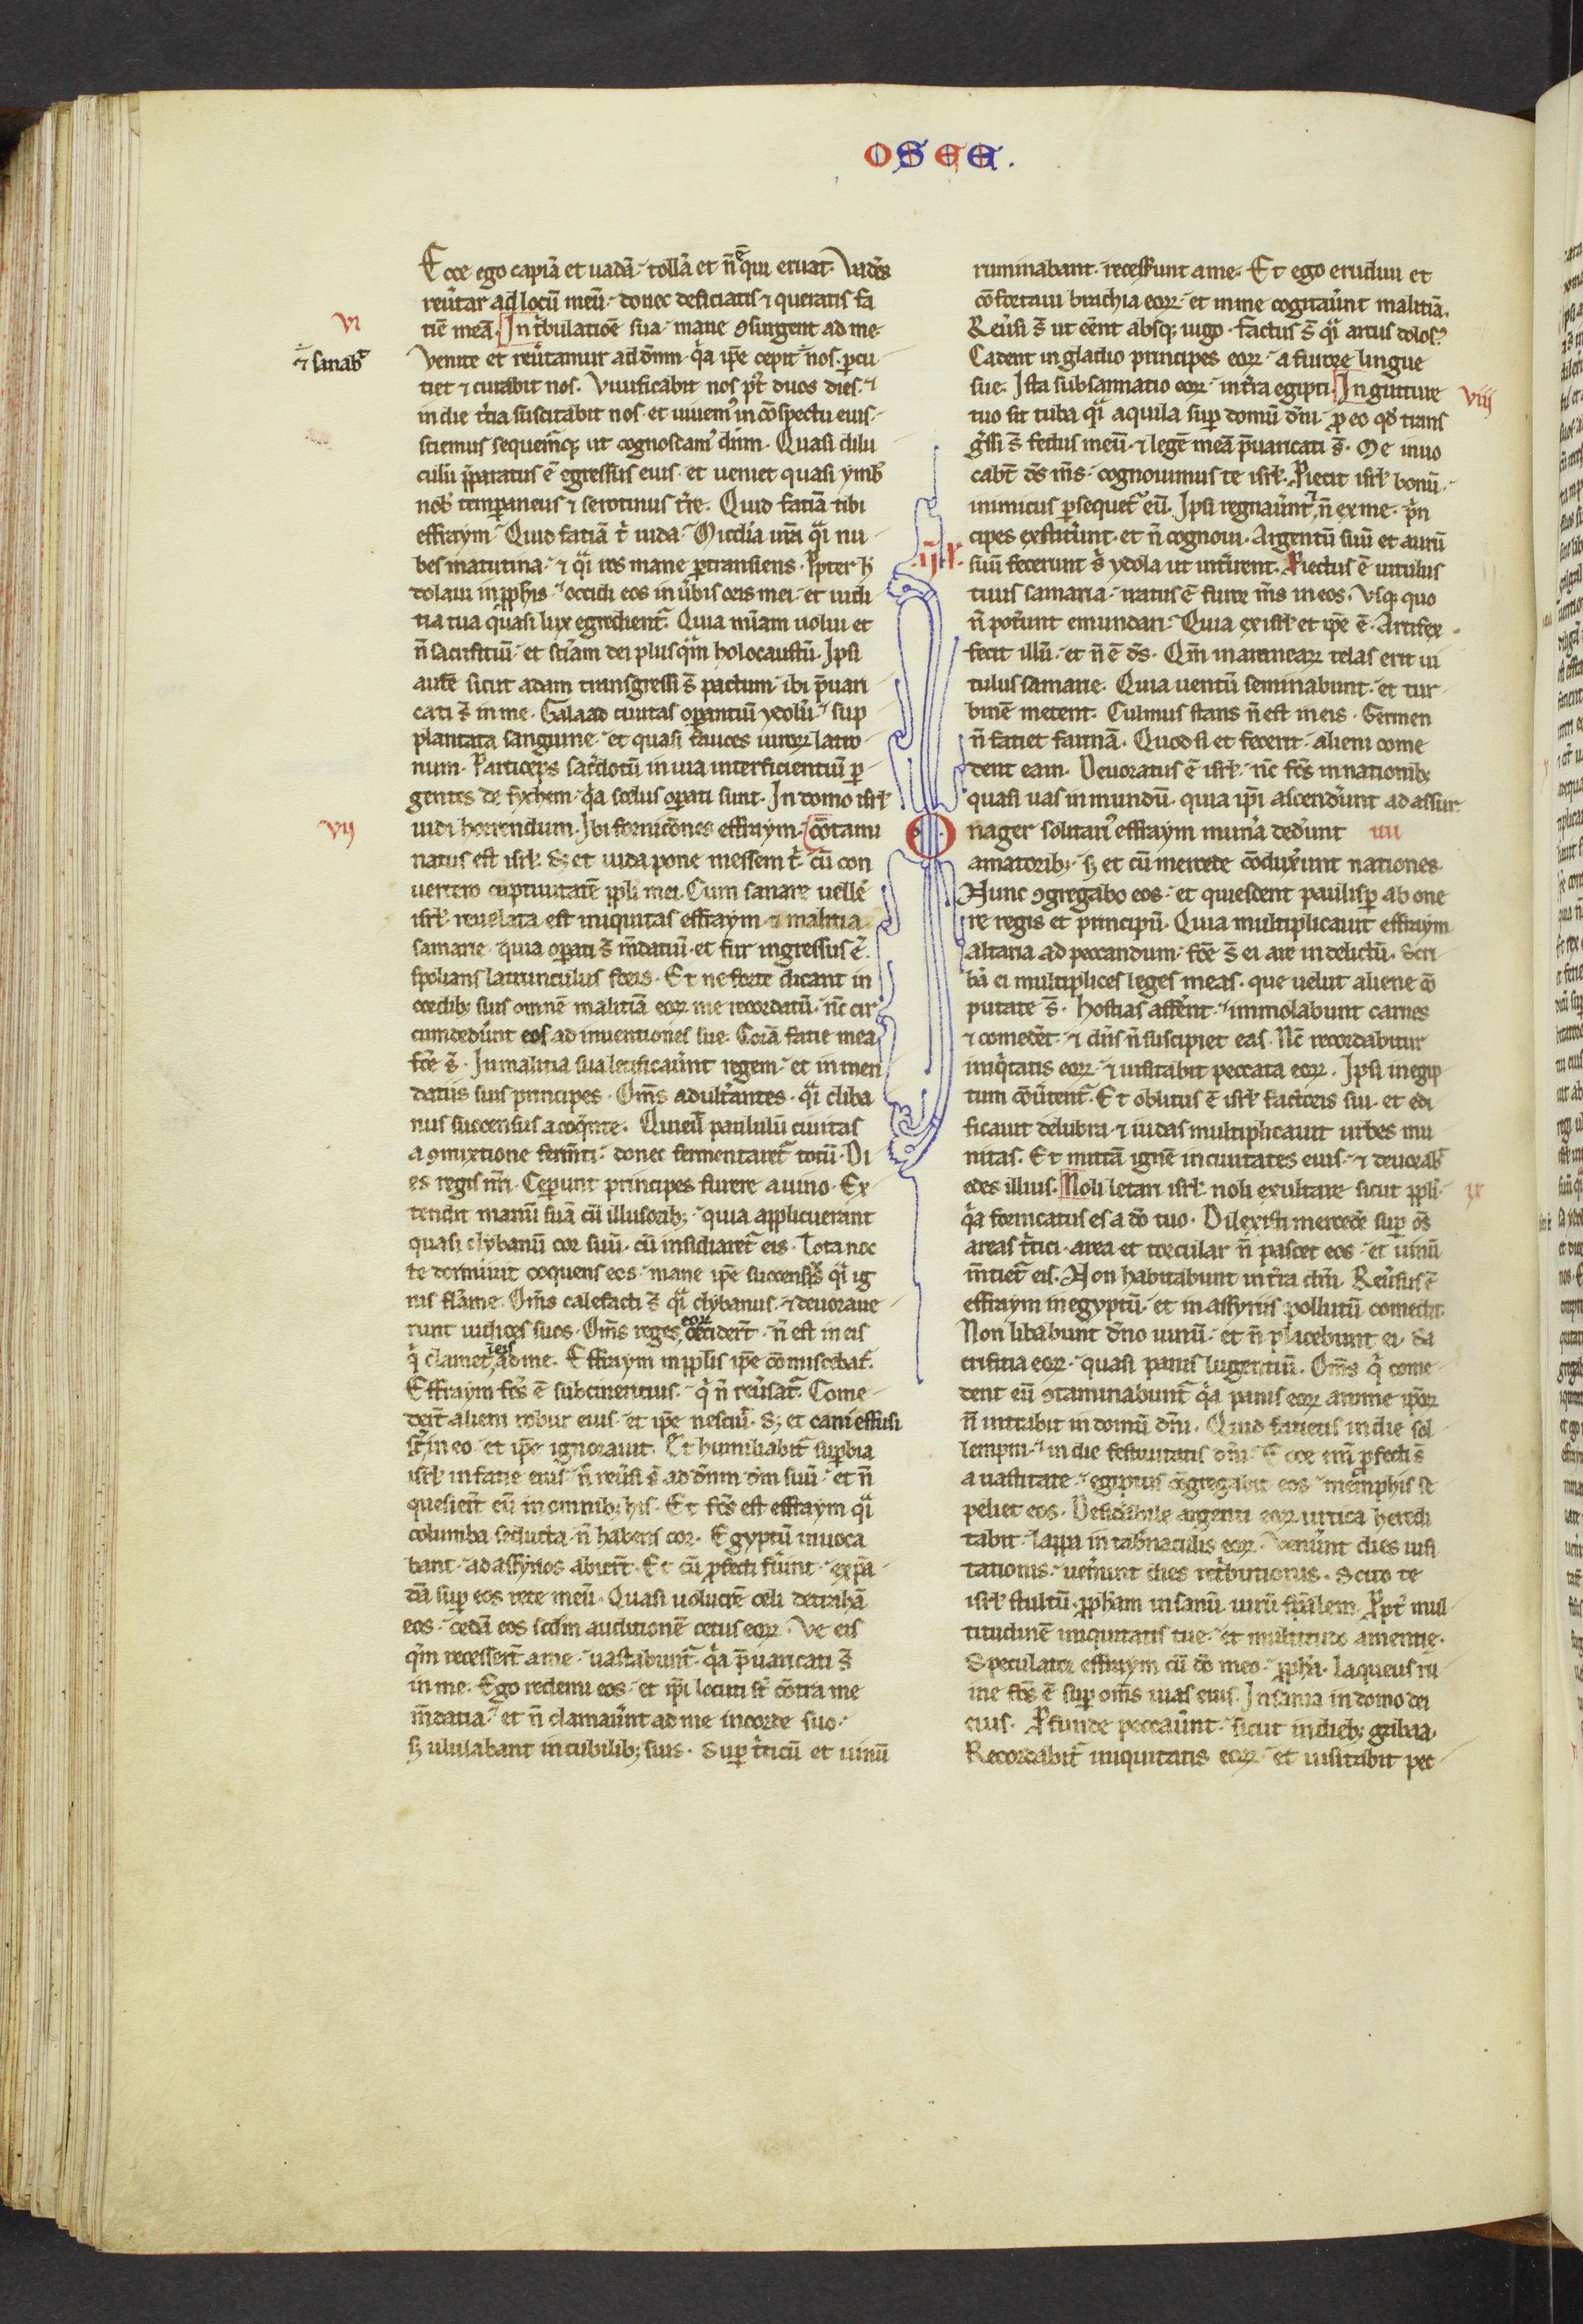 OSEE.
Ecce ego capiā et uadā. tollā et n̄ ē qui eruat. Uadēs
reu̾tar ad locū meū. donec deficiatis ⁊ queratis fa
VI
tiē meā. In t̾bulatiōe sua. mane ꝯsurgent ad me.
⁊ sanab̾
Venite et reu̾tamur ad dn̄m. q̾a ip̄e cepit nos. ꝑcu
tiet ⁊ curabit nos. Viuificabit nos pꝰt duos dies. ⁊
in die t̾tia suscitabit nos. et uiuemꝰ in cōspectu eius.
sciemus sequem̾qꝫ ut cognoscamꝰ dn̄m. Quasi dilu
culū p̄paratus ē egressus eius. et ueniet quasi ymb̾
nob̾ temporaneus ⁊ serotinus t̾re. Quid fatiā tibi
effraym. Quid fatiā t̾ iuda. Mīdia ur̄a q̾i nu
bes matutina. ⁊ q̾i ros mane ꝑtransiens. Ꝓpter h̾
dolaui in ꝓph̾is. occidi eos in u̾bis oris mei. et iudi
tia tua quasi lux egredient̾. Quia mīam uolui et
n̄ sacrifitiū. et sc̄iam dei plusq̾m holocaustū. Ipsi
autē sicut adam transgressi s̄ pactum. ibi p̄uari
cati s̄ in me. Galaad ciuitas oꝑantiū ydolū. sup
plantata sanguine. et quasi fauces uiroꝝ latro
num. Particeps sac̾dotū in uia interficientiū ꝑ
gentes de sychem. q̾a scelus oꝑati sunt. In domo isrl̾
VII
uidi horrendum. Ibi fornicōnes effraym. cōtami
natus est isrl̾. Sꝫ et iuda pone messem t̾ cū con
uertero captiuitatē ppl̾i mei. Cum sanare uellē
isrl̾. reuelata est iniquitas effraym ⁊ malitia
samarie. quia oꝑati s̄ m̄datiū. et fur ingressus ē.
spolians latrunculus foris. Et ne forte dicant in
cordibꝫ suis omnē malitiā eoꝝ me recordatū. nc̄ cir
cumdedu̾nt eos ad inuentiones sue. Corā fatie mea
fcē s̄. In malitia sua letificau̾nt regem. et in men
datiis suis principes. Om̄s adult̾antes. q̾i cliba
nus succensus a coq̾nte. Quieuit paululū ciuitas
a ꝯmixtione ferm̄ti. donec fermentaret̾ totū. Di
es regis nr̄i. Ceperunt principes furere a uino. Ex
tendit manū suā cū illusoribꝫ. quia applicuerant
quasi clybanū cor suū. cū insidiaret̾ eis. Tota noc
te dormiuit coquens eos. mane ip̄e succensus q̾i ig
nis flāme. Om̄s calefacti s̄ q̾i clybanus. ⁊ deuoraue
runt iudices suos. Om̄s reges eoꝝ cecider̄t. n̄ est in eis
q̾ clamet ad me. Effraym in ppl̾is ip̄e cōmiscebat̾.
Effraym fc̄s ē subcinericius. q̾ n̄ reu̾sat̾. Come
der̄t alieni robur eius. et ip̄e nesciu̾. Sꝫ et cani effusi
st̾ in eo. et ip̄e ignorauit. Et humiliabit̾ suꝑbia
isrl̾ in fatie eius. n̄ reu̾si s̄ ad dn̄m dm̄ suū. et n̄
quesier̄t eū in omnibꝫ his. Et fc̄s est effraym q̾i
columba seducta. n̄ habens cor. Egyptū inuoca
bant. ad assyrios abier̄t. Et cū ꝓfecti fu̾int. expā
dā suꝑ eos rete meū. Quasi uolucrē celi detrahā
eos. cedā eos scdm̄ auditionē cetus eoꝝ. Ve eis
q̾m recesser̄t a me. uastabunt̾. q̾a p̄uaricati s̄
in me. Ego redemi eos. et ip̄i locuti st̾ cōtra me
m̄datia. et n̄ clamau̾nt ad me in corde suo.
sꝫ ululabant in cubilibꝫ suis. Suꝑ t̾ticū et uinū
ruminabant. recesserunt a me. Et ego erudiui et
cōfortaui brachia eoꝝ. et in me cogitau̾nt malitiā.
Reu̾si s̄ ut eēnt absqꝫ iugo. factus s̄ q̾i arcus dolosꝰ.
Cadent in gladio principes eoꝝ. a furore lingue
sue. Ista subsannatio eoꝝ. in t̾ra egipti. In gutture
VIII
tuo sit tuba q̾i aquila suꝑ domū dn̄i. ꝓ eo qd̾ trans
g̾ssi s̄ fedus meū. ⁊ legē meā p̄uaricati s̄. Me inuo
cabt̄ ds̄ m̄s. cognouimus te isrl̾. Ꝓiecit isrl̾ bonū.
inimicus ꝑsequet̾ eū. Ipsi regnau̾nt. n̄ ex me. p̾n
cipes exstiter̄unt. et n̄ cognoui. Argentū suū et aurū
suū fecerunt s̾ ydola ut int̾irent. Ꝓiectus ē uitulus
tuus samaria. iratus ē furor m̄s in eos. Vsqꝫ quo
n̄ pot̾unt emundari. Quia ex isrl̾ et ip̄e ē. Artifex
fecit illū. et n̄ ē ds̄. Qm̄ in aranearꝝ telas erit ui
tulus samarie. Quia uentū seminabunt. et tur
binē metent. Culmus stans n̄ est in eis. Germen
n̄ fatiet farinā. Quod si et fecerit. alieni come
dent eam. Deuoratus ē isrl̾. nc̄ fc̄s in nationibꝫ
quasi uas inmundū. quia ip̄i ascendu̾nt ad assur
Onager solitari̾ effraym mun̾a dedu̾nt
amatoribꝫ. sꝫ et cū mercede cōdux̾unt nationes.
Nunc ꝯgregabo eos. et quiescent paulisꝑ ab one
re regis et principū. Quia multiplicauit effraym
altaria ad peccandum. fcē s̄ ei are in delictū. Scri
bā ei multiplices leges meas. que uelut aliene cō
putate s̄. Hostias affer̄nt. ⁊ immolabunt carnes
⁊ comedēt. ⁊ dn̄s n̄ suscipiet eas. Nc̄ recordabitur
iniq̾tatis eoꝝ. ⁊ uisitabit peccata eoꝝ. Ipsi in egip
tum cōu̾tent̾. Et oblitus ē isrl̾ factoris sui. et edi
ficauit delubra. ⁊ iudas multiplicauit urbes mu
nitas. Et mittā ignē in ciuitates eius. ⁊ deuorab̾
edes illius. Noli letari isrl̾ noli exultare sicut ppl̾i.
IX
q̾a fornicatus es a dō tuo. Dilexisti mercedē suꝑ os̄
areas t̾tici. area et torcular n̄ pascet eos. et uinū
m̄tiet̾ eis. Non habitabunt in t̾ra dn̄i. Reu̾sus ē
effraym in egyptū. et in assyriis pollutū comedit.
Non libabunt dn̄o uinū. et n̄ placebunt ei. Sa
crifitia eoꝝ. quasi panis lugentiū. Om̄s q̾ come
dent eū ꝯtaminabunt̾. q̾a panis eoꝝ anime ip̄oꝝ
n̄ intrabit in domū dn̄i. Quid fatietis in die sol
lempni. in die festiuitatis dn̄i. Ecce eni̅ ꝓfecti s̄
a uastitate. egiptus cōgregabit eos. memphis se
peliet eos. Desid̾abile argenti eoꝝ urtica heredi
tabit. lappa in tab̾naculis eoꝝ. Venu̾nt dies uisi
tationis. uen̾unt dies ret̾butionis. Scito te
isrl̾ stultū. ꝓph̾am insanū. uirū sp̄ualem. Ꝓpt̾ mul
titudinē iniquitatis tue. et multitudo amentie.
Speculator effraym cū dō meo. ꝓph̾a. laqueus ru
ine fc̄s ē suꝑ om̄s uias eius. Insania in domo dei
eius. Ꝓfunde peccau̾nt. sicut in diebꝫ gabaa.
Recordabit̾ iniquitatis eoꝝ. et uisitabit pec